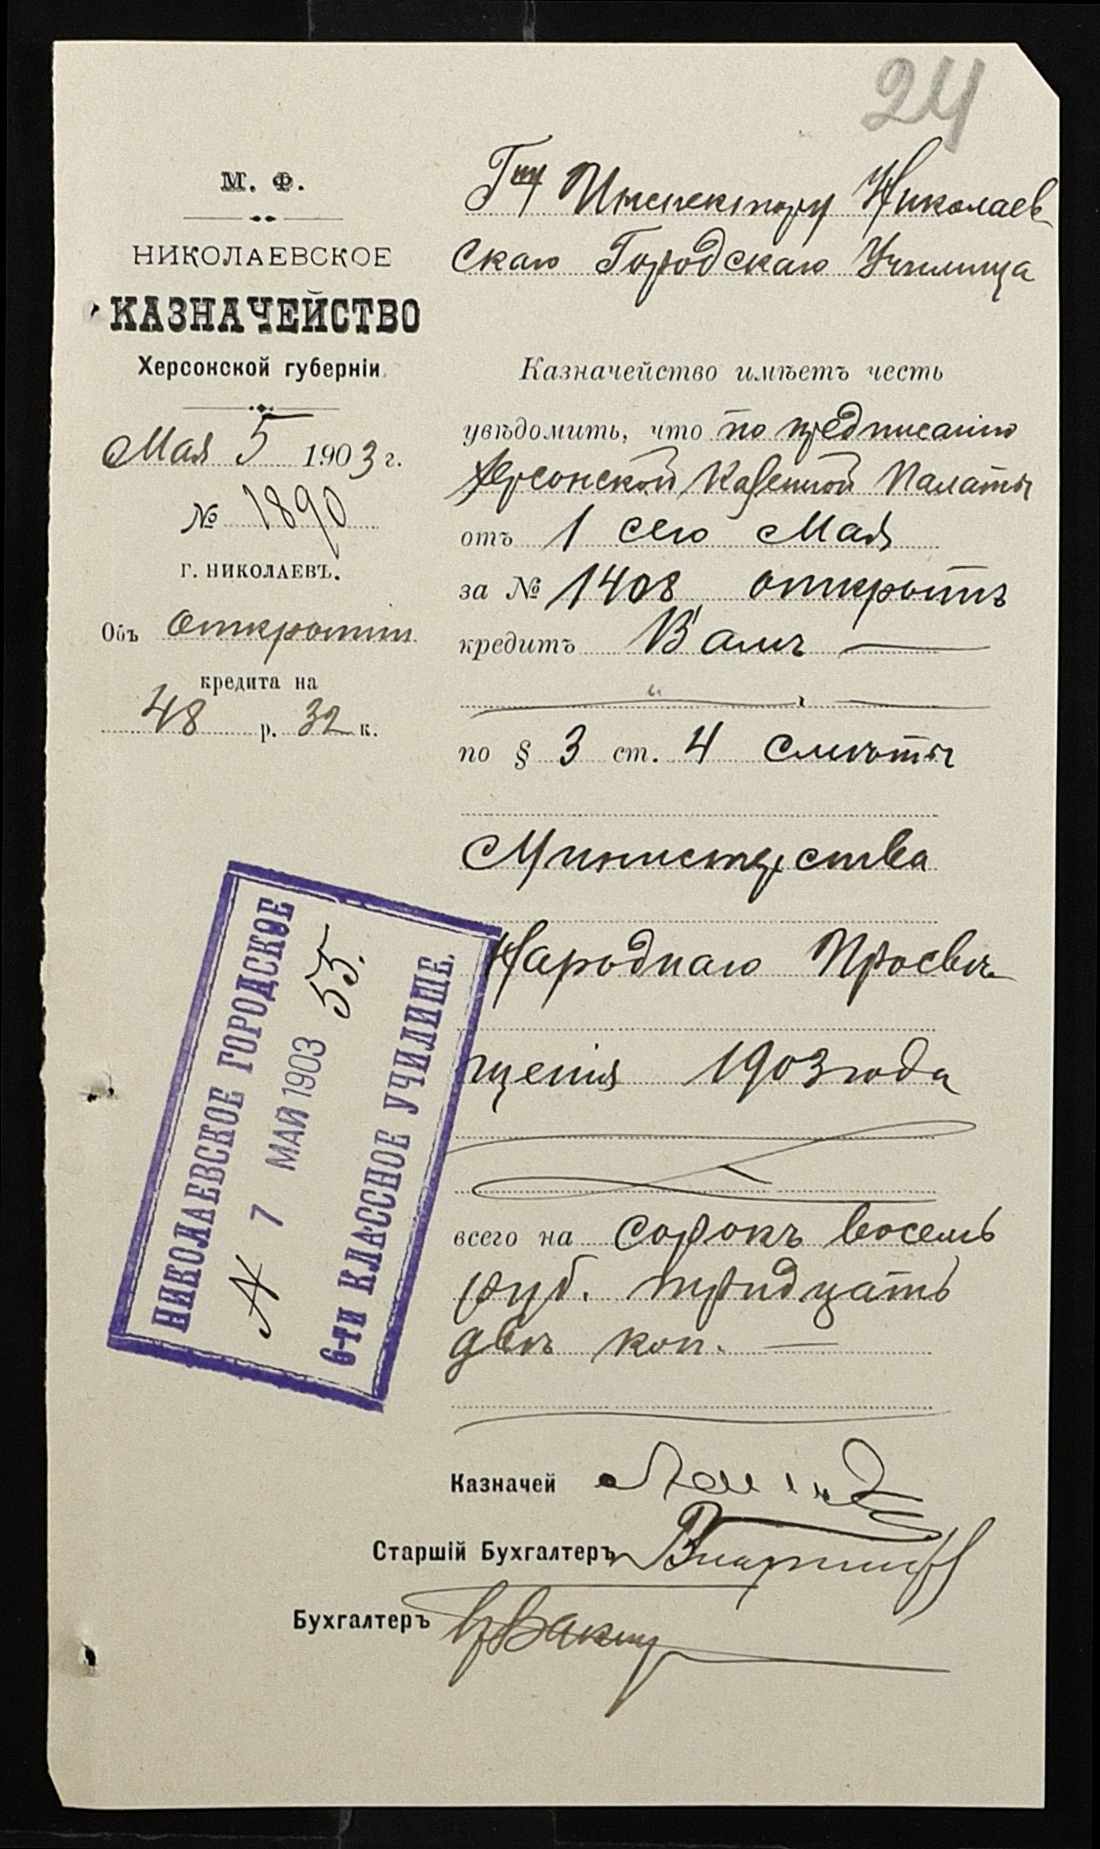 24
М. Ф.
НИКОЛАЕВСКОЕ
КАЗНАЧЕЙСТВО
Херсонской губерніи
Мая 5 1903 г.
№ 1890
Г. НИКОЛАЕВЪ.
Объ открытіи
кредита на
48 р. 32 к.
Гну Инспектору Николаев
скаго Городскаго Училища
Казначейство имѣетъ честь
увѣдомить, что по предписанію
Херсонской Казенной Палаты
отъ 1 сего Мая
за № 1408 открытъ
кредитъ Вамъ
по § 3 ст. 4 смѣты
Министерства
Народнаго Просвѣ
щенія 1903 года
всего на сорокъ восемь
руб. тридцать
двѣ коп.
НИКОЛАЕВСКОЕ ГОРОДСКОЕ
№ 7 МАЙ 1903 55.
6-ТИ КЛАССНОЕ УЧИЛИЩЕ.
Казначей
Старшій Бухгалтеръ
Бухгалтеръ